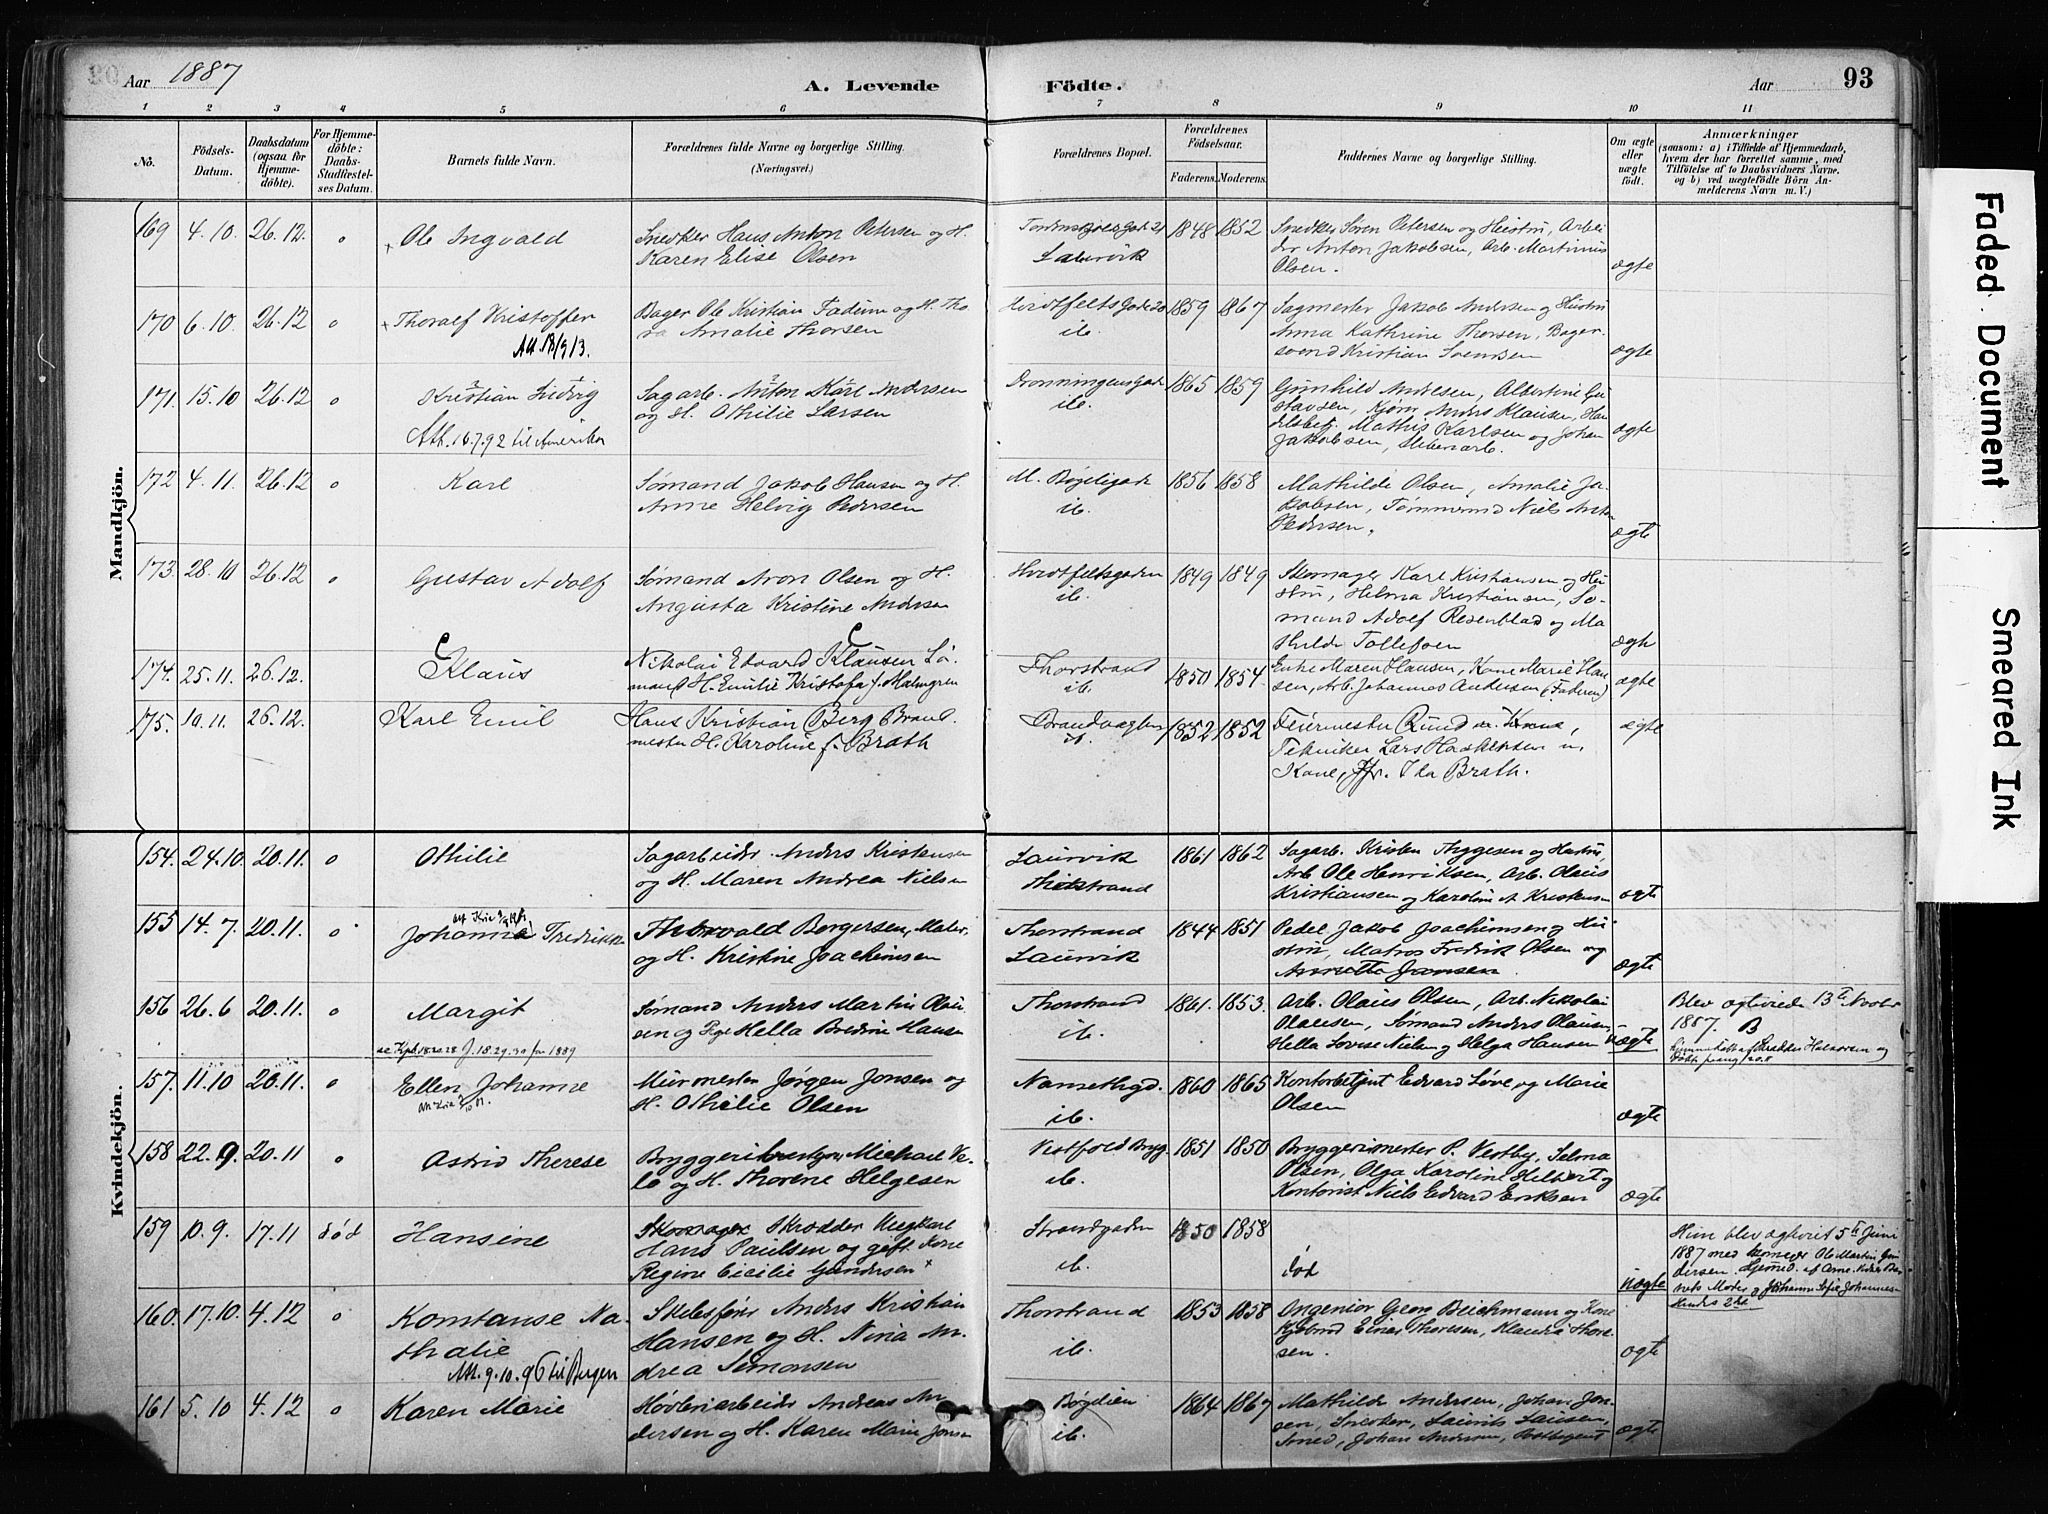 Aar 1887
A. Levende Födte.
Aar 93
1 2 3 4 5 6 7 8 9 10 11
No.
Födsels-Datum.
Daabsdatum (ogsaa for Hjemmedöbte).
For Hjemmedöbte: Daabs-Stadfæstelses Datum.
Barnets fulde Navn.
Forældrenes fulde Navne og borgerlige Stilling. (Næringsvei.)
Forældrenes Bopæl.
Forældrenes Födselsaar.
Faderens. Moderens.
Faddernes Navne og borgerlige Stilling.
Om ægte eller uægte födt.
Anmærkninger
(saasom: a) i Tilfælde af Hjemmedaab, hvem der har forrettet samme, med Tilföielse af to Daabsvidners Navne, og b) ved uægtefödte Börn Anmelderens Navn m. V.)
Mandkjön.
169 4.10. 26.12. o Ole Ingvald
Snedker Hans Anton Petersen og H.
Karen Elise Olsen
Laurvik
1848 1852
Snedker Søren Petersen og Hustru, Arbei
der Anton Jakobsen, Arb. Martinius
Olsen.
ægte
170 6.10. 26.12 o Thoralf Kristoffer
Att 18/9 13.
Bager Ole Kristian Fadum og H. Tho
ra Amalie Thorsen
Hvidtfelts Gade 20
ib.
1859 1867
Sagmester Jakob Andersen og Hustru
Anna Kathrine Thorsen, Bager
svend Kristian Svendsen
ægte
171. 15.10 26.12 o Kristian Ludvig
Att. 16.7.92 til Amerika
Sagarb. Anton Karl Andersen
og H. Othilie Larsen
Dronningensgade
ib.
1865 1859
Gunhild Andersen, Albertine Gu
stavsen, Anders Klausen, Han
delsbetj. Mathis Karlsen og Johan
Jakobsen,
ægte
172 4.11. 26.12 o Karl
Sømand Jakob Hansen og H.
Anne Helvig Pedersen
M. Bøgeligade
ib.
1856 1858
Mathilde Olsen, Amalie Ja-
kobsen, Tømmermd Niels Anton
Pedersen.
ægte
173. 28.10 26.12 o Gustav Adolf
Sømand Aron Olsen og H.
Augusta Kristine Andersen
Hvidtfeltsgaden
ib.
1849 1849
Skomager Karl Kristiansen og Hu
stru, Helma Kristiansen, Sø-
mand Adolf Rosenblad og Ma
thilde Tollefsen
ægte
174. 25.11. 26.12. C Klaus
Nikolai Edvard Klausen Sø-
mand H. Emilie Kristofa f. Malmgren
Thorstrand
ib.
1850 1854.
Enke Maren Hansen, Kone Marie Han
sen, Arb. Johannes Andersen (Faderen)
ægte
175. 10.11. 26.12. Karl Emil
Hans Kristian Berg Brand-
mester H. Karoline f. Brath
Brandvagten
ib.
1852 1852
Feiermester Rund m. Kone,
Tekniker Lars Haakensen m.
Kone, Jfr. Ida Brath.
ægte
Kvindekjön.
154. 24.10. 20.11. o Othilie
Sagarbeider Anders Kristensen
og H. Maren Andrea Nielsen
Laurvik
Thorstrand
1861 1862
Sagarb. Kristen Thygesen og Hustru,
Arb Ole Henriksen, Arb. Olaus
Kristiansen og Karoline A Kristensen
ægte
155 14.7. 20.11. o Johanne Fredrikke
Thorvald Borgersen, Maler,
og H. Kristine Joachimsen
Thorstrand
Laurvik
1844 1851
Pedel Jakob Joachimsen og Hu-
stru, Matros Fredrik Olsen og
Annette Jansen
ægte
156 26.6 20.11. o Margit
se Kpb. 18 20.28 J. 18.29.30 for 1889
Sømand Anders Martin Olau-
sen og Pige Hella Bredine Hansen
Thorstrand
ib.
1861. 1853.
Arb. Olaus Olsen, Arb. Nikolai
Olausen, Sømand Anders Olausen,
Hella Lovise Nielsen og Helga Hansen
uægte
Blev ægteviede 13de Novbr
1887. B
157. 11.10 20.11. o Ellen Johanne
Murmester Jørgen Jonsen og
H. Othilie Olsen
Nansethgd.
ib.
1860 1865
Kontorbetjent Edvard Løve, og Marie
Olsen
ægte
158 22.9. 20.11 o Astrid Therese
Bryggeribestyrer Michael Ve-
le og H. Thorene Helgesen
Vestfold Bryg.
ib.
1851 1850
Bryggerimester P. Vestby, Selma
Olsen, Olga Karoline Helbert og
Kontorist Niels Edvard Eriksen
ægte
159 10.9. 17.11 død Hansine
Skomager Skrædder Ungkarl
Hans Paulsen og gift Kone
Regine Cicilie Gundersen x
Strandgaden
ib.
1850 1858
død
uægte
Hun blev ægteviet 5te Juni
1887 med Skomager Ole Martin Gun
dersen. Hjemd. af
160. 17.10. 4.12 o Konstanse Na-
thalie
Att. 9.10.96 til Bergen
Skibsfører Anders Kristian
Hansen og H. Nina An-
drea Simonsen
Thorstrand
ib.
1853 1858
Ingeniør Georg Beichmann og Kone
Kjøbmd Einar Thoresen, Klaudia Thore-
sen.
ægte
161 5.10 4.12 o Karen Marie
Høvleriarbeider Andreas An
dersen og H. Karen Marie Jonsen
Bøgelien
ib.
1864 1867
Mathilde Andersen, Johan Jon-
sen, Snedker, Laurits Lausen,
Smed, Johan Andersen,
ægte
Faded Document
Smeared Ink